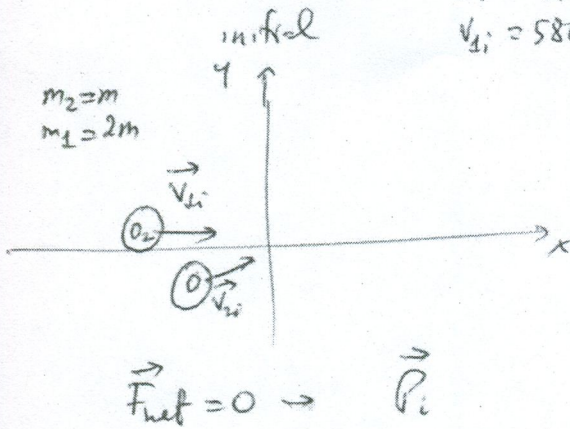 initial
v₁ᵢ = 58
y
m₂ = m
m₁ = 2m
v⃗₁ᵢ
O₂
x
O
v⃗₂ᵢ
F⃗net = 0 → P⃗ᵢ